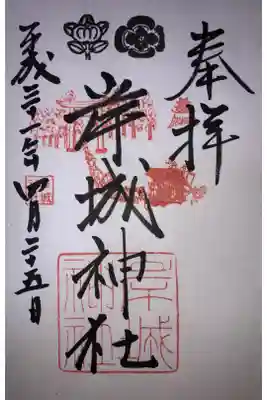 奉拝
岸城神社
平成三十一年四月二十五日